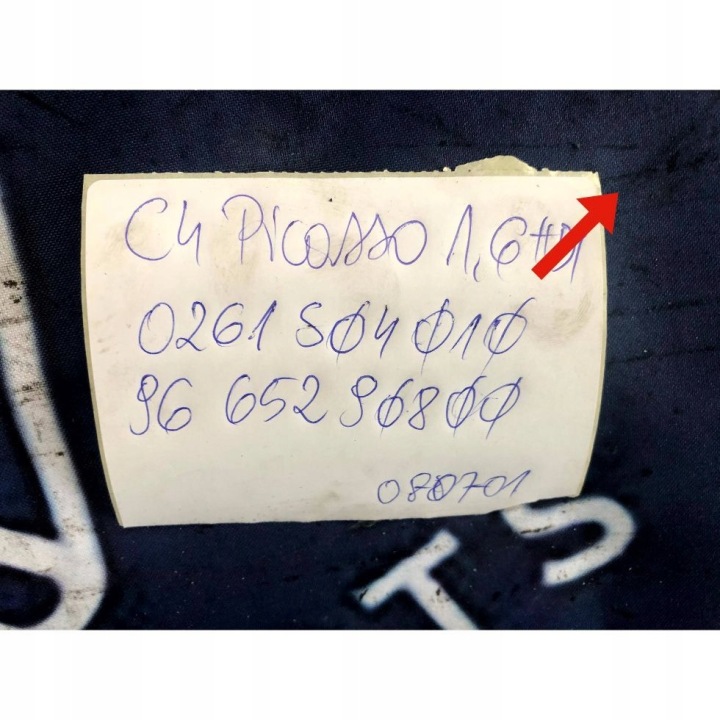 C4 Picasso 1,6 HDI
0261 S04 010
96 652 96800
080701
TS